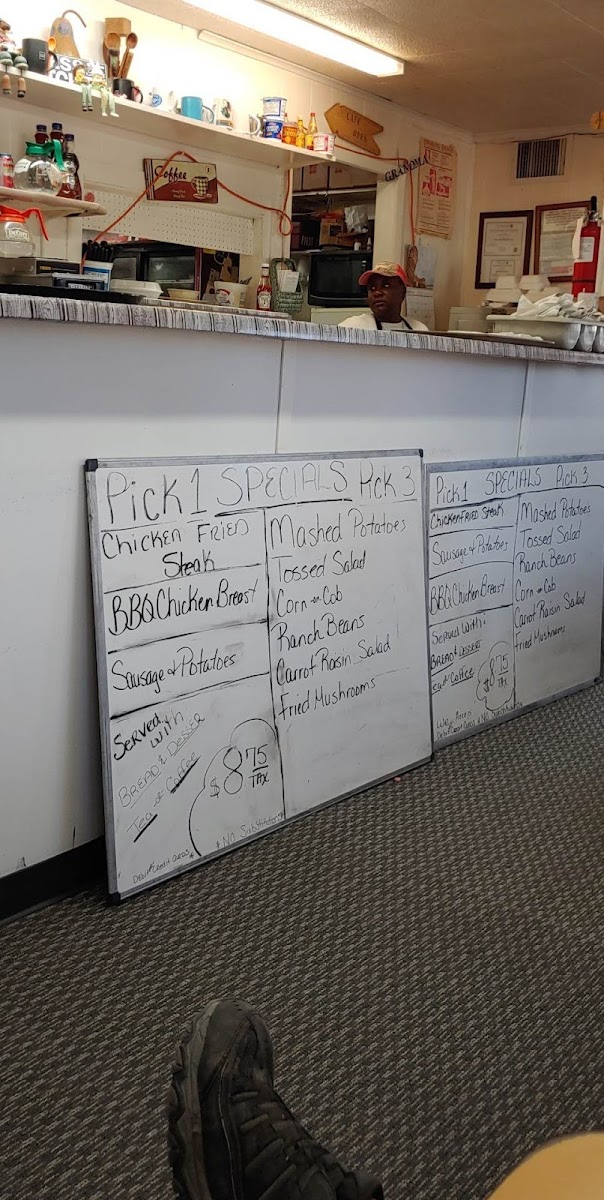 Coffee
CAFE
OPEN
GRANDMA
Pick 1 SPECIALS Pick 3
Chicken Fried
Steak
BBQ Chicken Breast
Sausage & Potatoes
Served
with
Bread & Desser
Tea or Coffee
$8.75
TAX
Debit & Credit Cards *
* No Substitutions
Mashed Potatoes
Tossed Salad
Corn on Cob
Ranch Beans
Carrot Raisin Salad
Fried Mushrooms
Pick 1 SPECIALS Pick 3
Chicken Fried Steak
Sausage & Potatoes
BBQ Chicken Breast
Served With:
Bread & Dessert
Coffee
$8.75
TAX
Mashed Potatoes
Tossed Salad
Ranch Beans
Corn on Cob
Carrot Raisin Salad
Fried Mushrooms